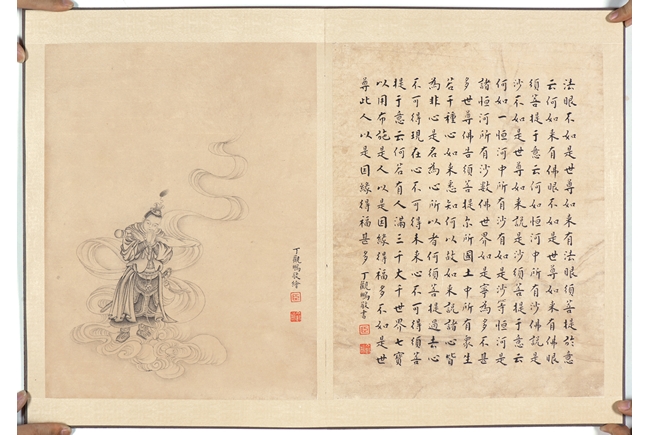 法眼不如是世尊如來有法眼須菩提於意
云何如來有佛眼不如是世尊如來有佛眼
須菩提于意云何如恒河中所有沙佛說是
沙不如是世尊如來說是沙須菩提于意云
何如一恒河中所有沙有如是沙等恒河是
諸恒河所有沙數佛世界如是寧為多不甚
多世尊佛告須菩提尔所國土中所有衆生
若干種心如來悉知何以故如來說諸心皆
為非心是名為心所以者何須菩提過去心
不可得現在心不可得未來心不可得須菩
提于意云何若有人滿三千大千世界七寶
以用布施是人以是因緣得福多不如是世
尊此人以是因緣得福甚多 丁觀鵬敬書
丁觀鵬敬繪